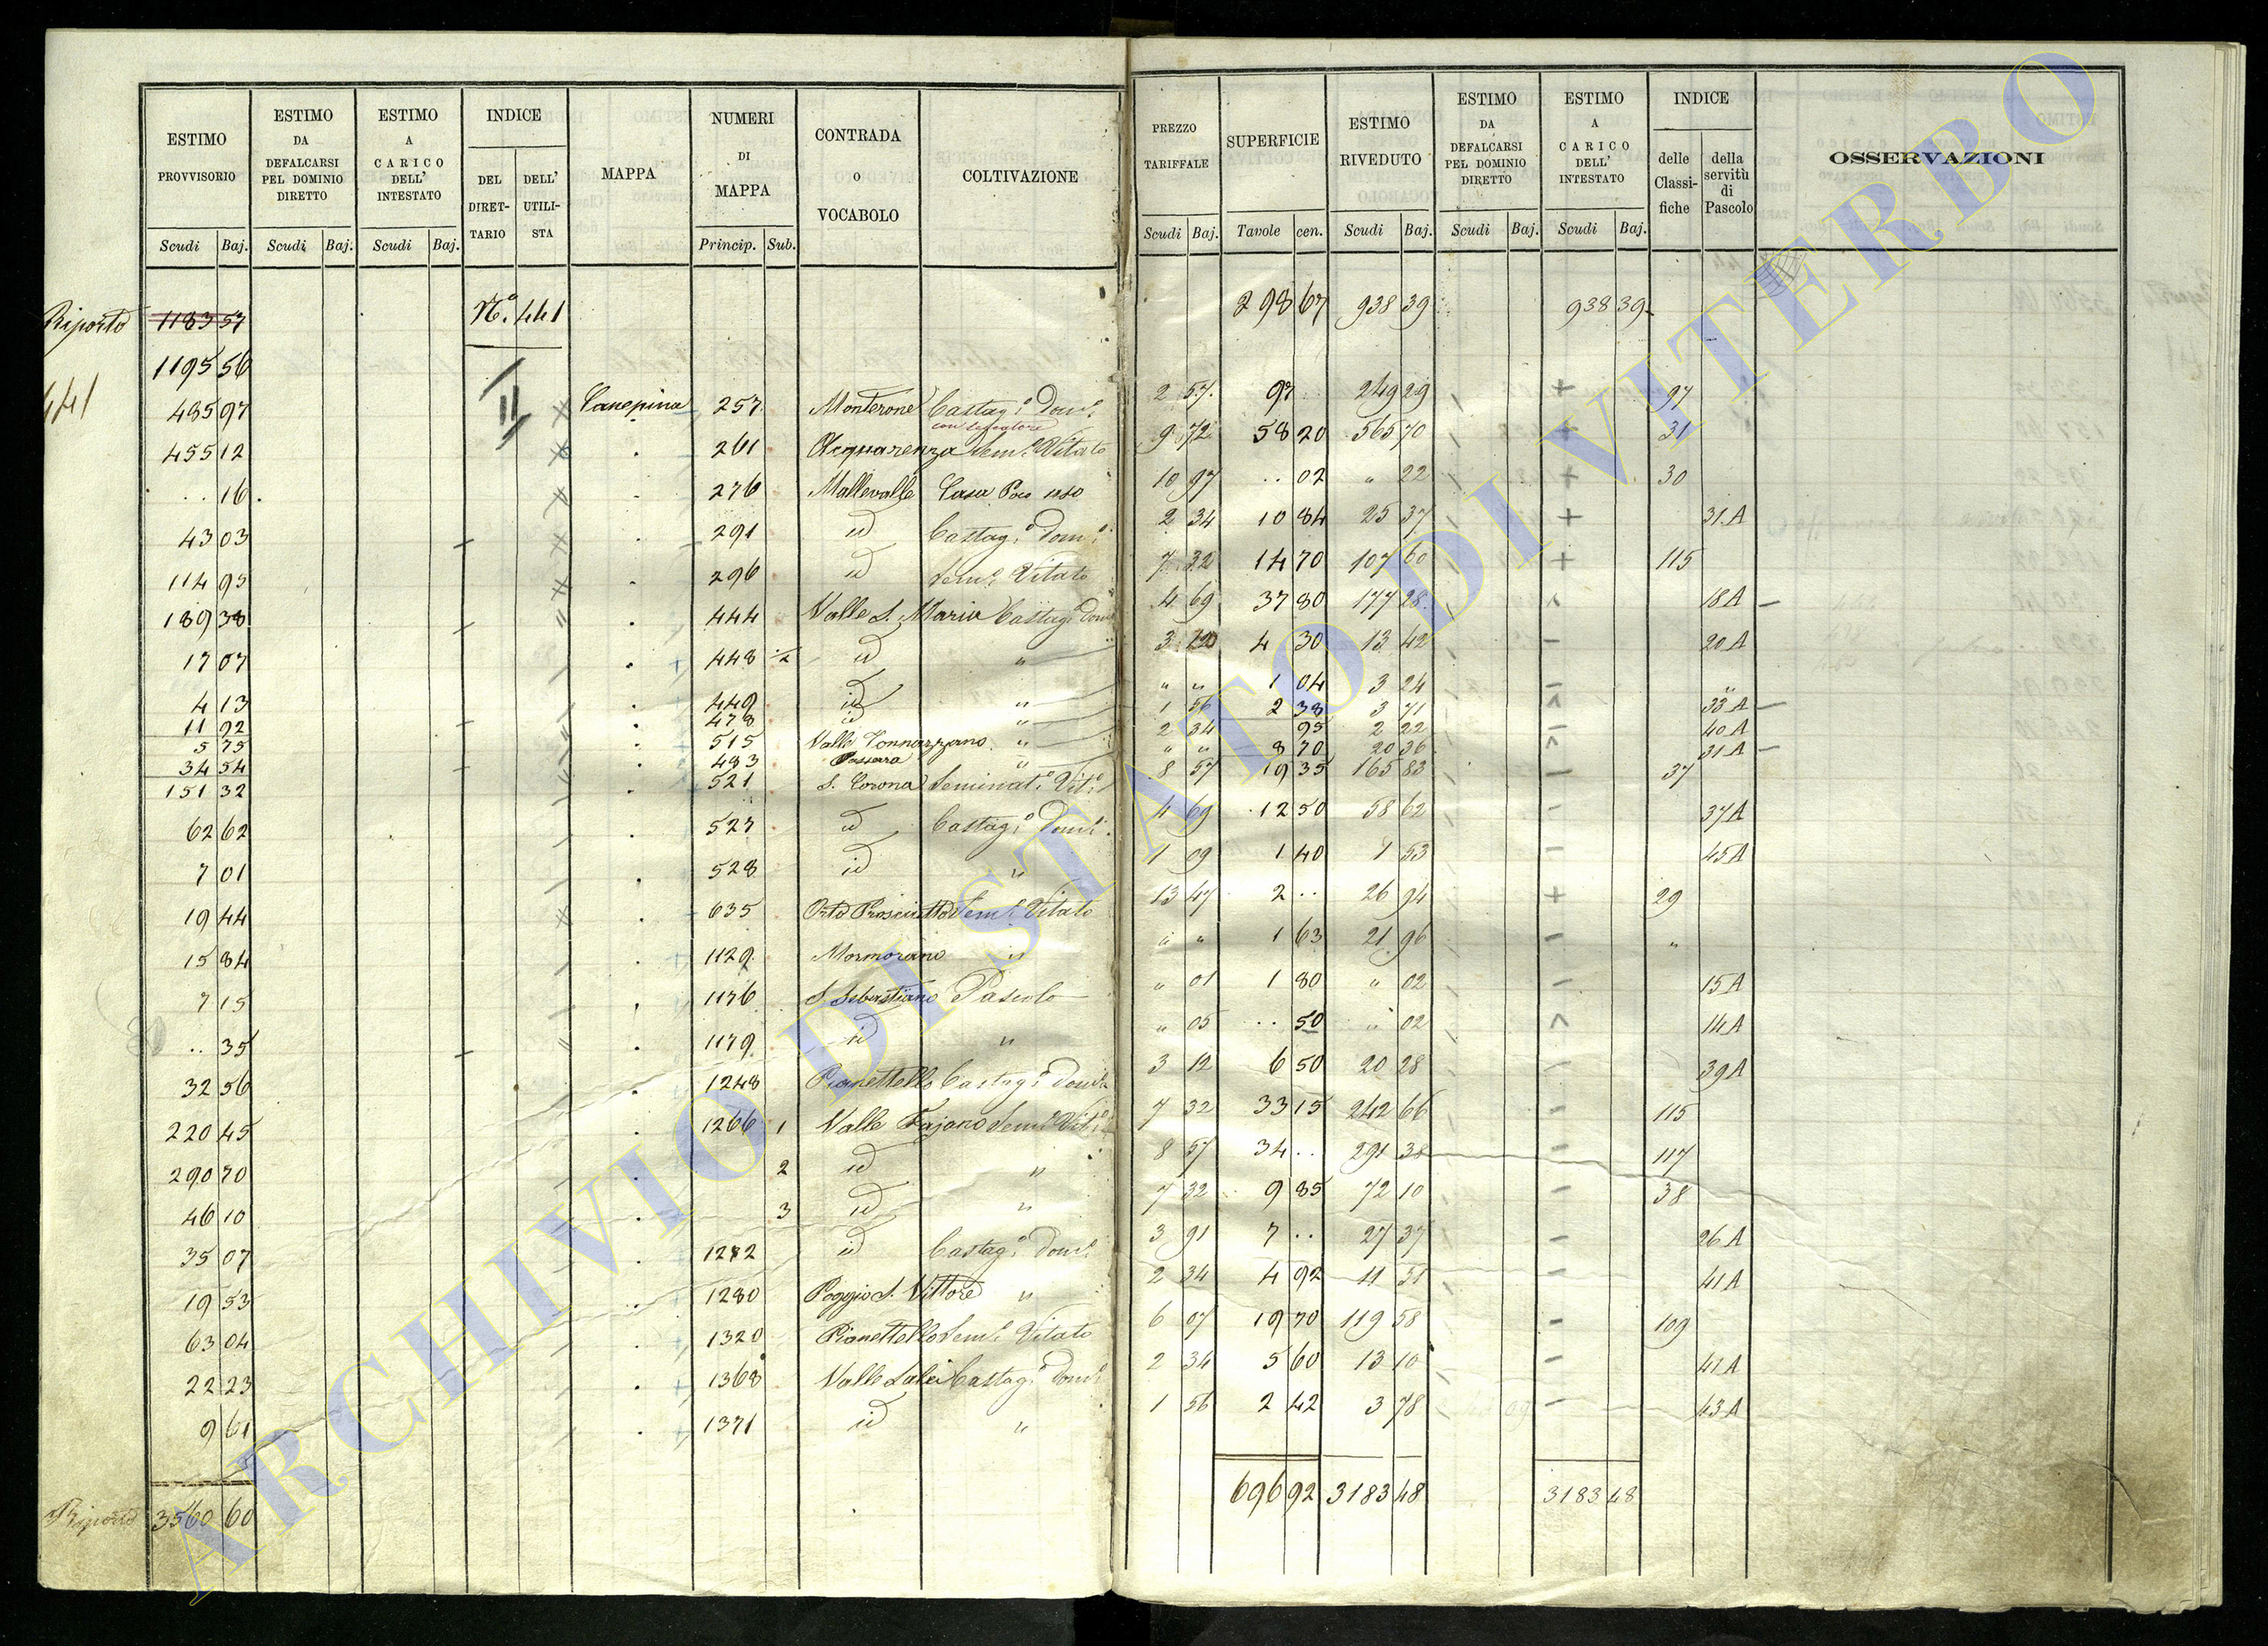 ESTIMO PROVVISORIO | ESTIMO DA DEFALCARSI PEL DOMINIO DIRETTO | ESTIMO A CARICO DELL' INTESTATO | INDICE DEL DIRET-TARIO | DELL' UTILI-STA | MAPPA | NUMERI DI MAPPA | CONTRADA O VOCABOLO | COLTIVAZIONE | PREZZO TARIFFALE | SUPERFICIE | ESTIMO RIVEDUTO | ESTIMO DA DEFALCARSI PEL DOMINIO DIRETTO | ESTIMO A CARICO DELL' INTESTATO | INDICE delle Classi-fiche | della servitù di Pascolo | OSSERVAZIONI
Scudi Baj. | Scudi Baj. | Scudi Baj. | Princip. Sub. | Scudi Baj. | Tavole cen. | Scudi Baj. | Scudi Baj. | Scudi Baj.
Riporto 1183 57 | N.º 441 | 298 67 | 938 39 | 938 39
1195 56
441
485 97 | II | Canepina | 257 | Monterone | Castag.º Dom.e | 2 57 | 97 | 249 29 | + | 97
455 12 | 261 | Acquarenza | Sem.e Vitato | 9 72 | 58 20 | 565 70 | + | 31
.. 16 | 276 | Mallevalle | Casa Poco uso | 10 97 | .. 02 | " 22 | + | 30
43 03 | 291 | id | Castag.º Dom.e | 2 34 | 10 84 | 25 37 | + | 31.A
114 95 | 296 | id | Sem.e Vitato | 7 32 | 14 70 | 107 60 | + | 115
189 38 | 444 | Valle S. Maria | Castag.º Dom.e | 4 69 | 37 80 | 177 28 | 18A
17 07 | 448 ½ | id | " | 3 | 4 30 | 13 42 | 20A
4 13 | 449 | id | " | " " | 1 04 | 3 24 | "
11 92 | 478 | id | " | 1 56 | 2 38 | 3 71 | 33A
5 75 | 515 | Valle Tonnazzano | " | 2 34 | 95 | 2 22 | 40A
34 54 | 483 | " | " " | 8 70 | 20 36 | 31A
151 32 | 521 | S. Corona | Seminat.º Vit.º | 8 57 | 19 35 | 165 83 | 37
62 62 | 527 | id | Castag.º Dom.e | 4 69 | 12 50 | 58 62 | 37A
7 01 | 528 | id | " | 1 09 | 1 40 | 1 53 | 45A
19 44 | 635 | Orto Prosciutto | Sem.e Vitato | 13 47 | 2 .. | 26 94 | + | 29
15 84 | 1129 | Mormorano | " | " " | 1 63 | 21 96 | "
7 15 | 1176 | S. Sebastiano | Pascolo | " 01 | 1 80 | " 02 | 15A
.. 35 | 1179 | id | " | " 05 | .. 50 | " 02 | 14A
32 56 | 1248 | Pianettello | Castag.º Dom.e | 3 12 | 6 50 | 20 28 | 39A
220 45 | 1266 1 | Valle Fajano | Sem.e Vit.º | 7 32 | 33 15 | 242 66 | 115
290 70 | 2 | id | " | 8 57 | 34 .. | 291 38 | 117
46 10 | 3 | id | " | 7 32 | 9 85 | 72 10 | 38
35 07 | 1272 | id | Castag.º Dom.e | 3 91 | 7 .. | 27 37 | 26A
19 53 | 1280 | Poggio S. Vittore | " | 2 34 | 4 92 | 11 51 | 41A
63 04 | 1320 | Pianettello | Sem.e Vitato | 6 07 | 19 70 | 119 58 | 109
22 23 | 1368 | Valle | Castag.º Dom.e | 2 34 | 5 60 | 13 10 | 41A
9 61 | 1371 | id | " | 1 56 | 2 42 | 3 78 | 43A
Riporto 3560 60 | 696 92 | 3183 48 | 3183 48
ARCHIVIO DI STATO DI VITERBO